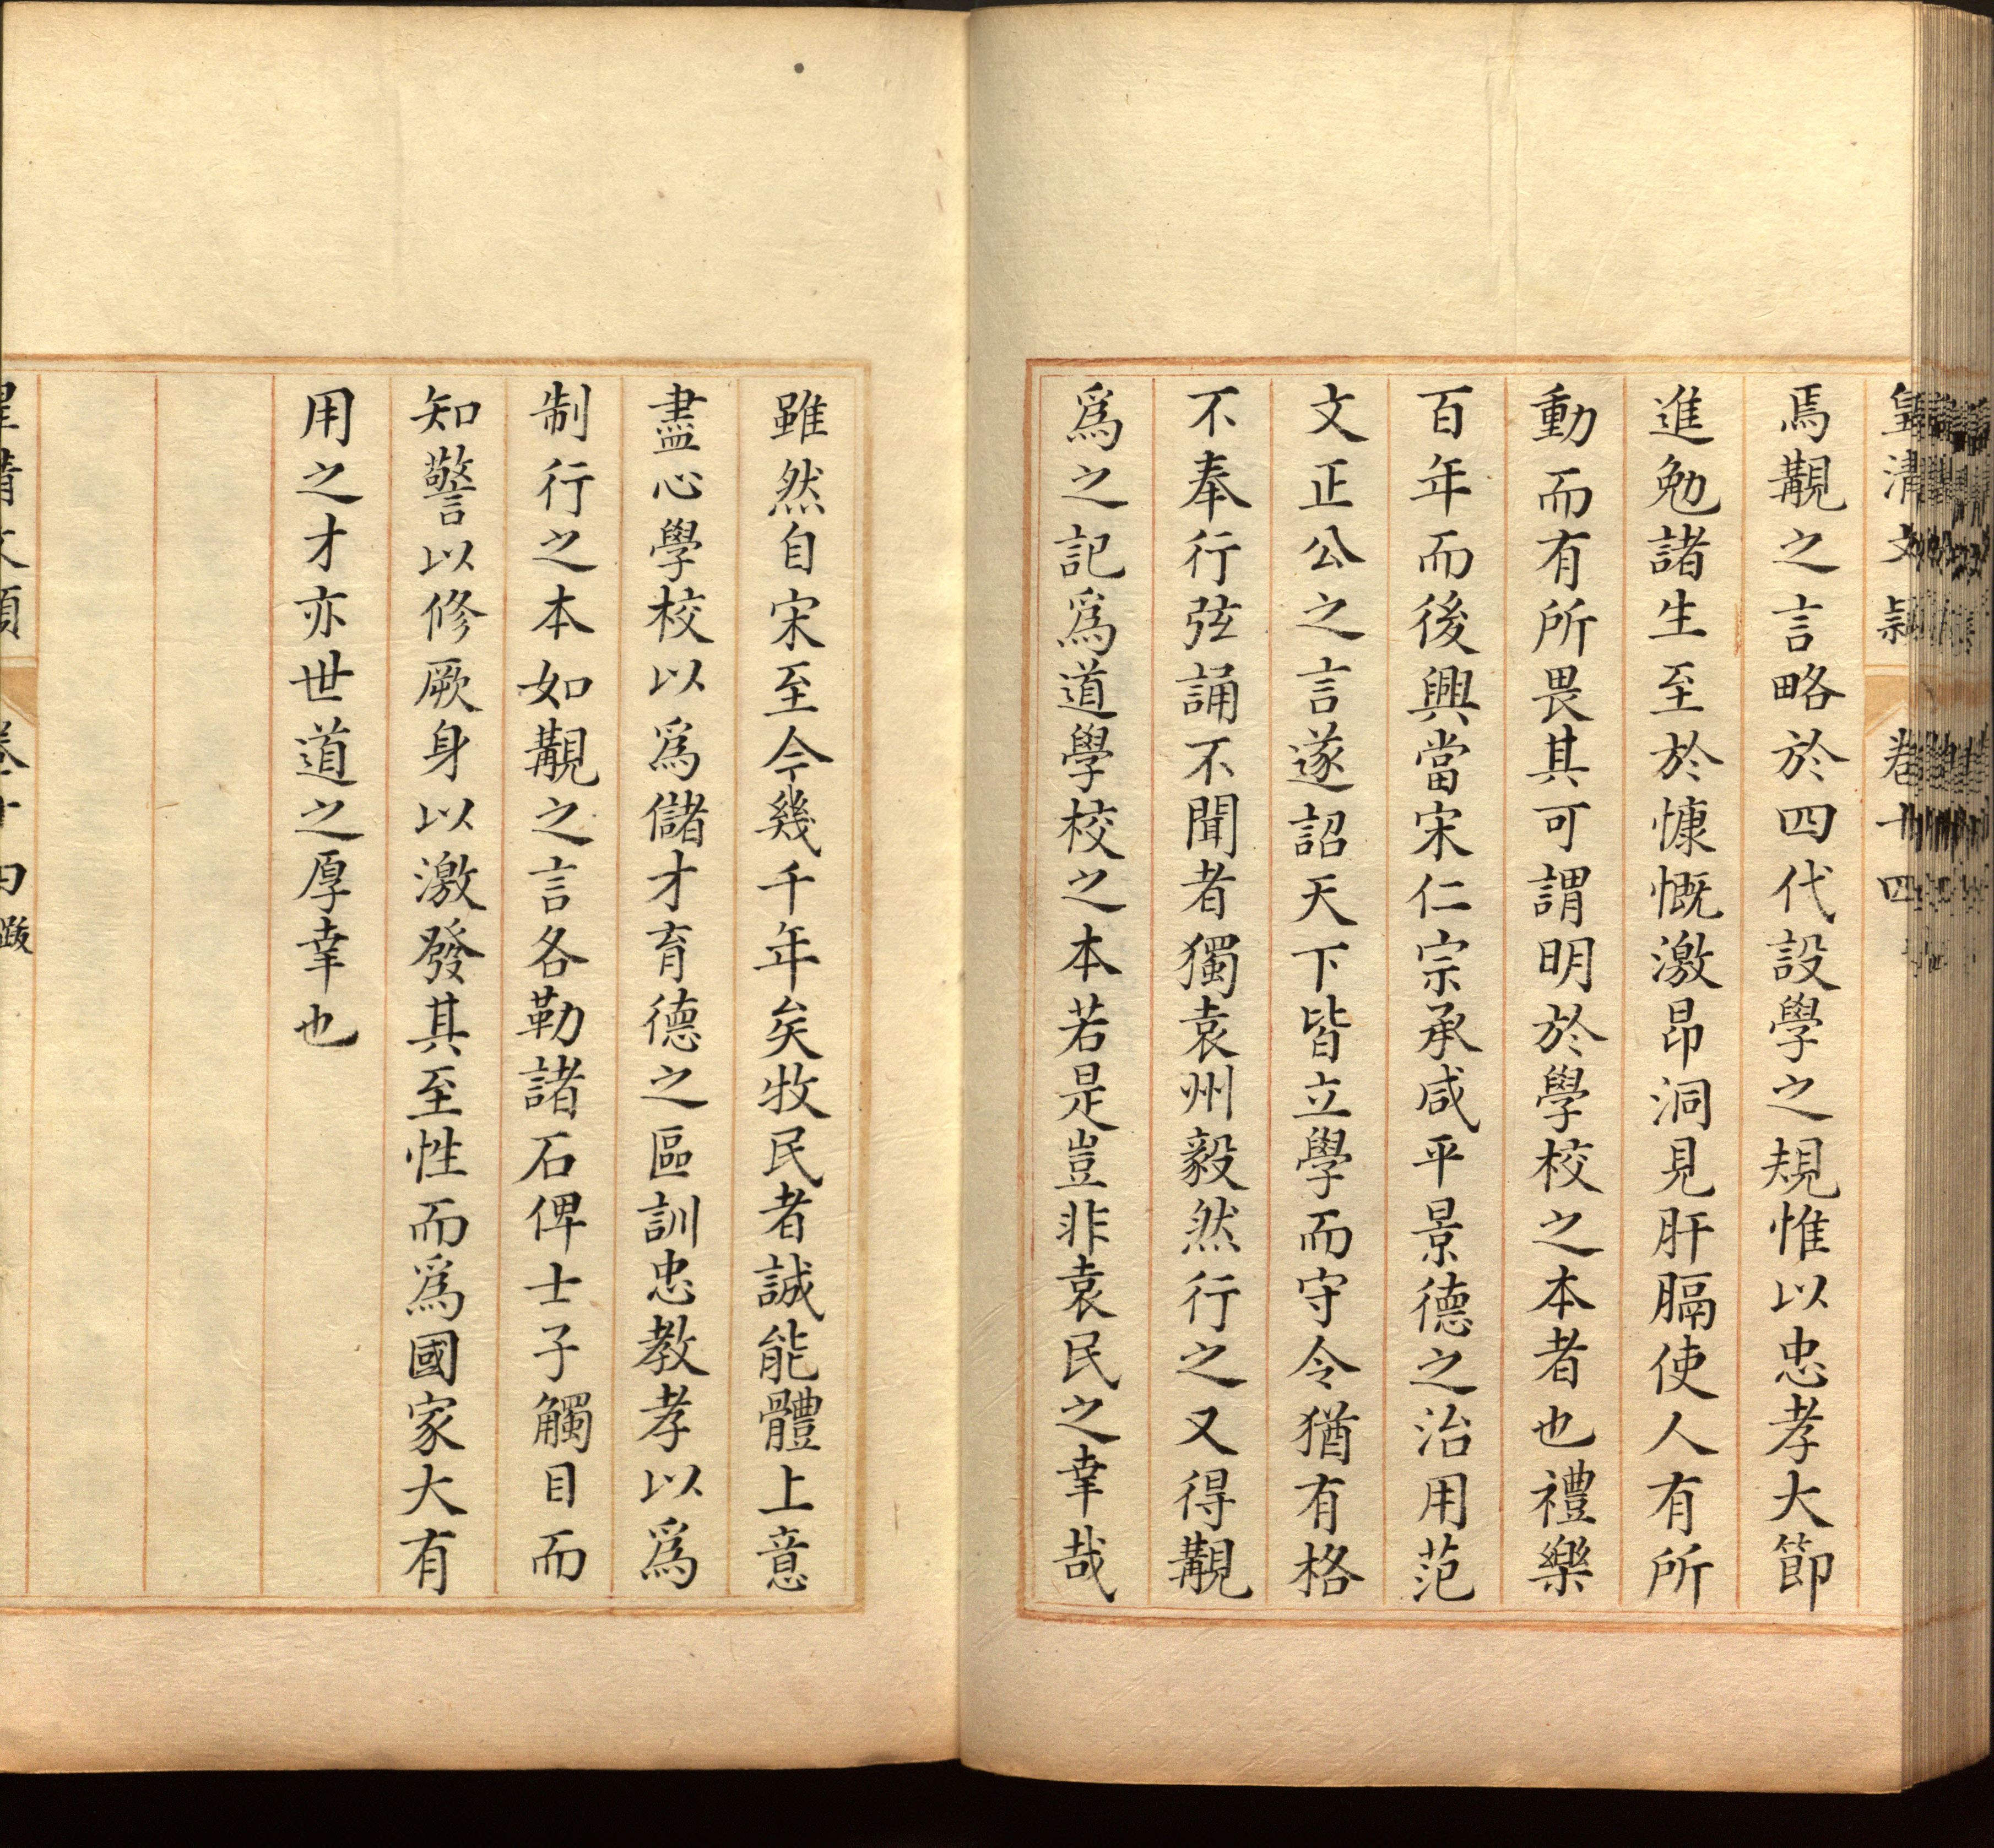 皇清文穎 卷十四
焉覯之言略於四代設學之規惟以忠孝大節
進勉諸生至於慷慨激昂洞見肝膈使人有所
動而有所畏其可謂明於學校之本者也禮樂
百年而後興當宋仁宗承咸平景德之治用范
文正公之言遂詔天下皆立學而守令猶有格
不奉行弦誦不聞者獨袁州毅然行之又得覯
爲之記爲道學校之本若是豈非袁民之幸哉
雖然自宋至今幾千年矣牧民者誠能體上意
盡心學校以爲儲才育德之區訓忠教孝以爲
制行之本如覯之言各勒諸石俾士子觸目而
知警以修厥身以激發其至性而爲國家大有
用之才亦世道之厚幸也